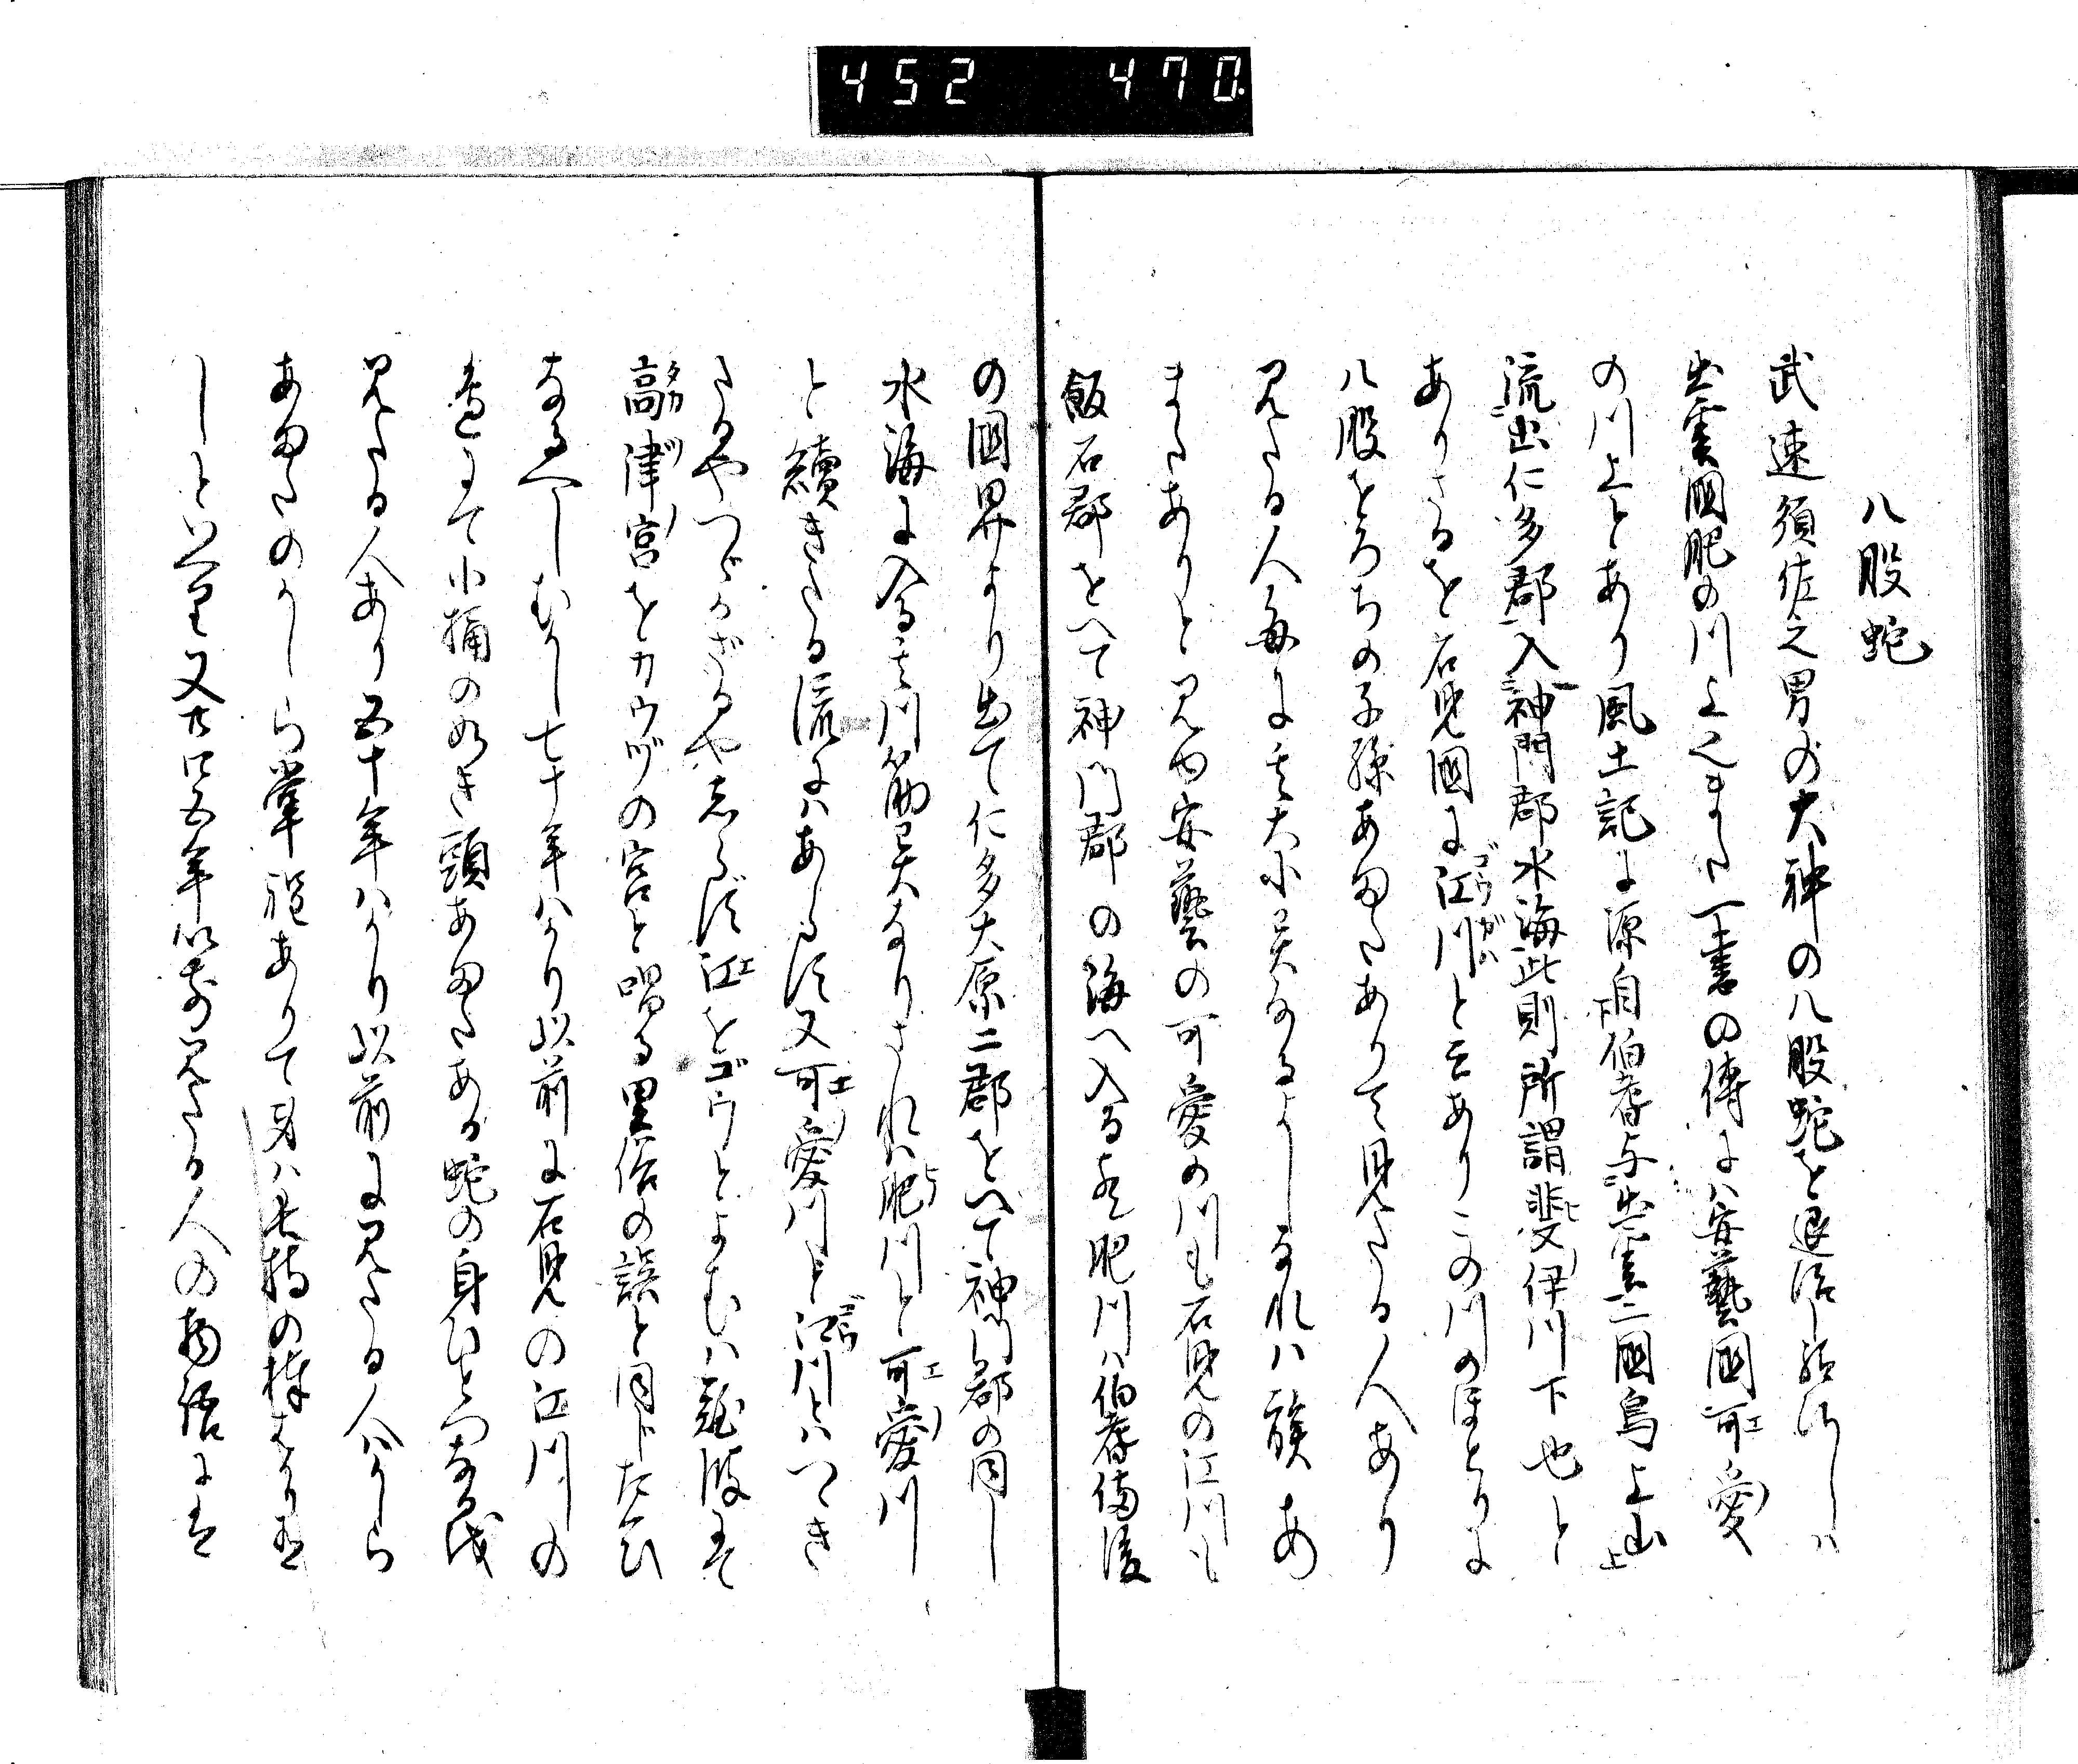 452 470
八股蛇
武速須佐之男の大神の八股蛇を退治し給ひしハ
出雲國肥の川上也また一書の傳にハ安藝國可愛
の川上とあり風土記に源自伯耆与出雲二國鳥上山
流出仁多郡入神門郡水海此則所謂斐伊川下也と
ありさるを石見國に江川と云ありこの川のほとりに
八股をろちの子孫あまたありて見たる人あり
見たる人毎に其大小異なるよしなれハ族あ
またありと見ゆ安藝の可愛の川も石見の江川も
飯石郡をへて神門郡の海へ入る也肥川ハ伯耆備後
の國界より出て仁多大原二郡をへて神門郡の同し
水海に入る其川筋異なりされハ肥川と可愛川
と續きたる流にハあらす又可愛川と江川とハつき
たるやつゞかざるやしらず江をゴウとよむハ難波にて
高津宮をカウヅの宮と唱る里俗の誤と同したくひ
なるへしむかし七十年ハかり以前に石見の江川の
邊にて小桶の如き頭あまたある蛇の身ひとつなる を
見たる人あり五十年ハかり以前に見たる人ハかしら
あまたのかしら 毛ありて身ハ 持の様
しと 又廿四五年以前見たる人の物語に